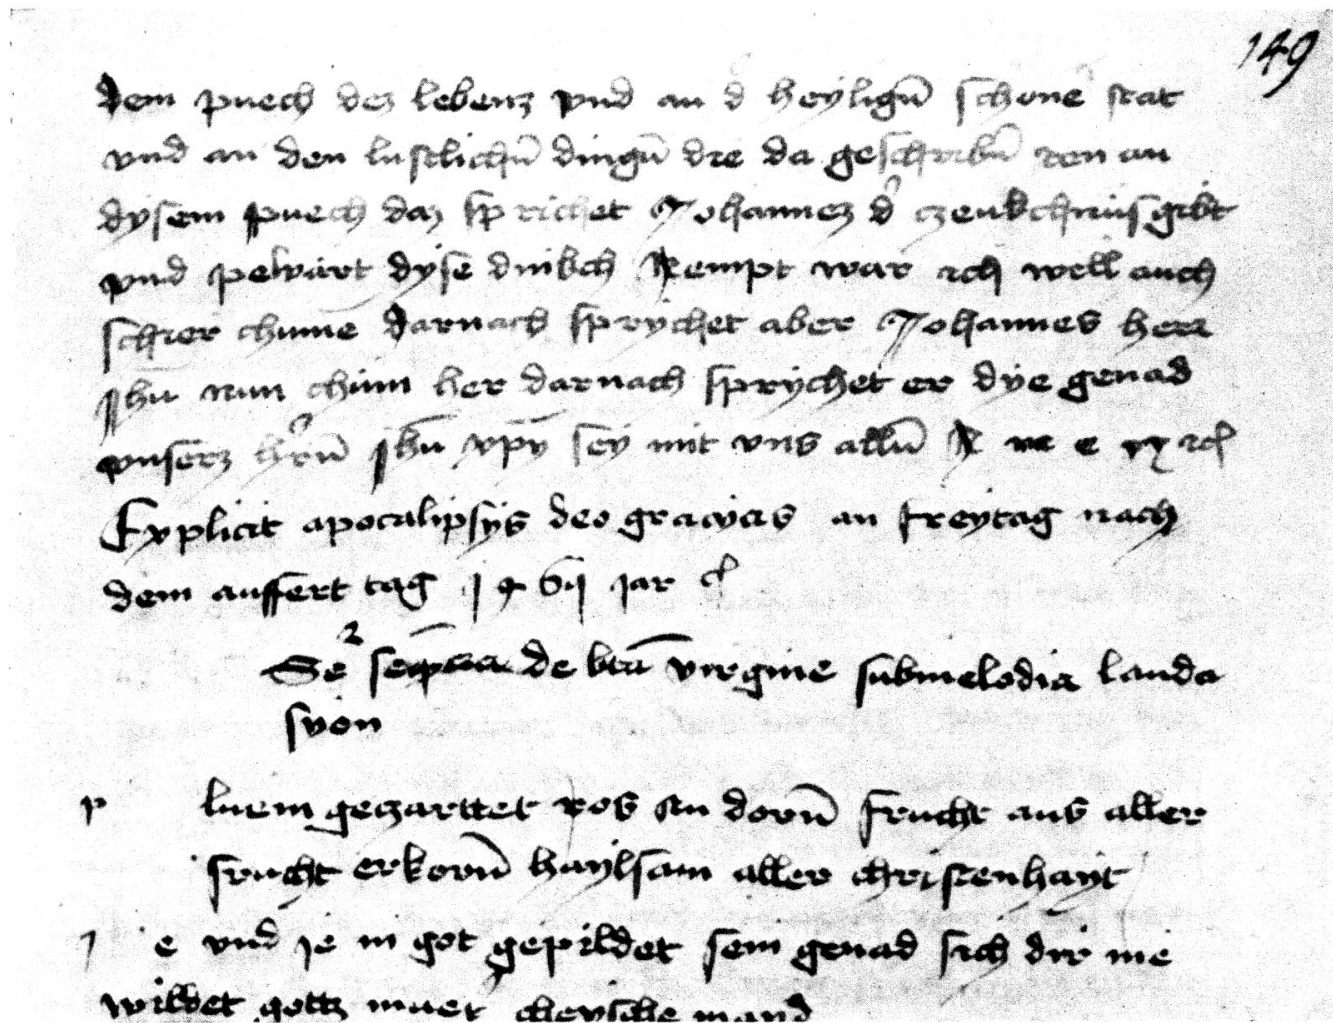 149
dem puech dez lebenz vnd an d' heylign̄ schone' stat
vnd an den lustlichn̄ dingn̄ die da geschribn̄ sten an
dysem puech daz sprichet Johannez d' czeukchnüs gibt
vnd pewärt dyse dinkch empt war ich well auch
schier chume darnach sprychet aber Johannes herr
jhū nun chüm her darnach sprychet er dye genad
vnserz h'rn̄ jhū xpȳ sey mit vns alln̄ A m e
Explicit apocalipsys deo gracias an freytag nach
dem auffert tag jar
de bta virgine sub melodia lauda
syon
p luem geczarttet ros an dorn̄ frucht aus aller
frucht erkorn̄ haylsam aller christenhayt
J e vnd je in got gepildet sein genad sich dir nie
wildet gottz